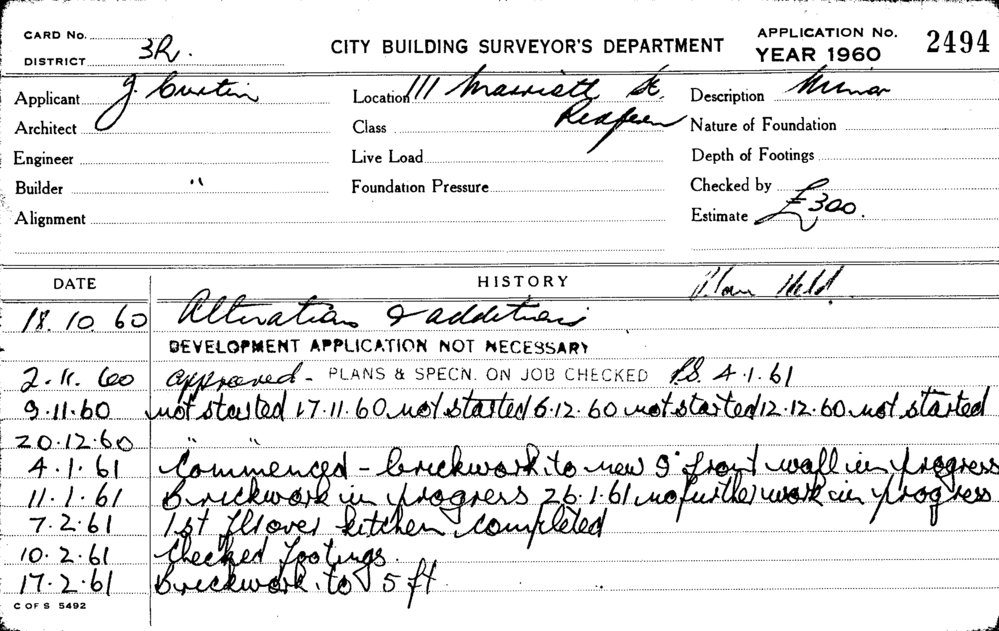 CARD No.
DISTRICT 3R.
CITY BUILDING SURVEYOR'S DEPARTMENT
APPLICATION No. 2494
YEAR 1960
Applicant J. Curtin Location 111 Marriott St. Redfern Description Minor
Architect Class Nature of Foundation
Engineer Live Load Depth of Footings
Builder " Foundation Pressure Checked by
Alignment Estimate £300.
DATE HISTORY Plan Held.
18.10.60 Alterations & additions
DEVELOPMENT APPLICATION NOT NECESSARY
2.11.60 approved - PLANS & SPECN. ON JOB CHECKED 4.1.61
9.11.60 not started 17.11.60 not started 6.12.60 not started 12.12.60 not started
20.12.60 " "
4.1.61 Commenced - brickwork to new 9" front wall in progress
11.1.61 Brickwork in progress 26.1.61 no further work in progress
7.2.61 1st floor kitchen completed
10.2.61 Checked footings.
17.2.61 Brickwork to 5 ft.
C OF S 5492